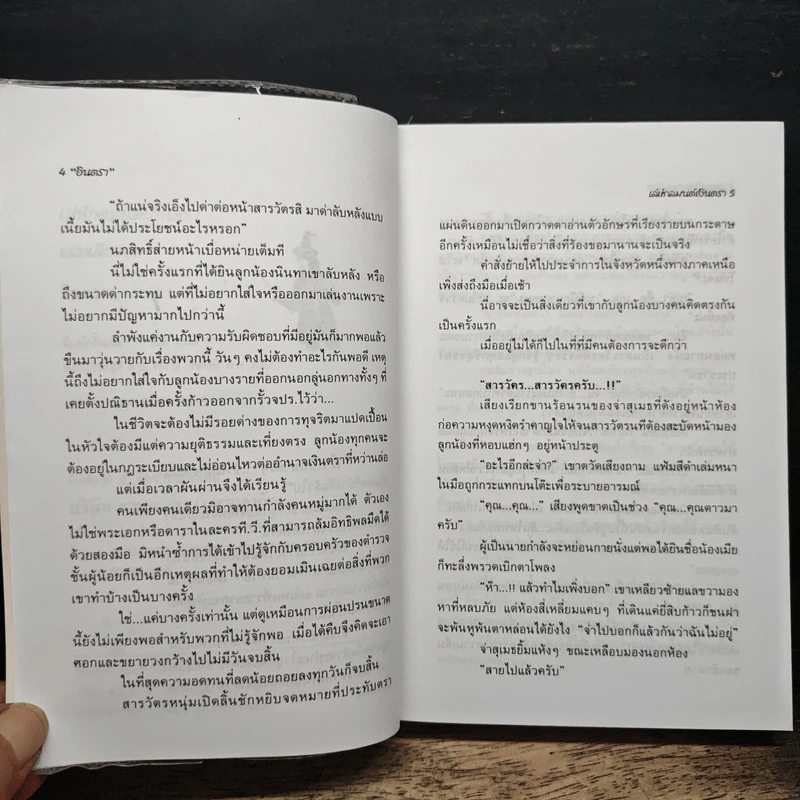 4 “อินตรา”
“ถ้าแน่จริงเอ็งไปด่าต่อหน้าสารวัตรสิ มาด่าลับหลังแบบ
เนี้ยมันไม่ได้ประโยชน์อะไรหรอก”
นภสิทธิ์ส่ายหน้าเบื่อหน่ายเต็มที
นี่ไม่ใช่ครั้งแรกที่ได้ยินลูกน้องนินทาเขาลับหลัง หรือ
ถึงขนาดด่ากระทบ แต่ที่ไม่อยากใส่ใจหรือออกมาเล่นงานเพราะ
ไม่อยากมีปัญหามากไปกว่านี้
ลำพังแค่งานกับความรับผิดชอบที่มีอยู่มันก็มากพอแล้ว
ขืนมาวุ่นวายกับเรื่องพวกนี้ วันๆ คงไม่ต้องทำอะไรกันพอดี เหตุ
นี้ถึงไม่อยากใส่ใจกับลูกน้องบางรายที่ออกนอกลู่นอกทางทั้งๆ ที่
เคยตั้งปณิธานเมื่อครั้งก้าวออกจากรั้วจปร.ไว้ว่า...
ในชีวิตจะต้องไม่มีรอยด่างของการทุจริตมาแปดเปื้อน
ในหัวใจต้องมีแต่ความยุติธรรมและเที่ยงตรง ลูกน้องทุกคนจะ
ต้องอยู่ในกฎระเบียบและไม่อ่อนไหวต่ออำนาจเงินตราที่หว่านล่อ
แต่เมื่อเวลาผันผ่านจึงได้เรียนรู้
คนเพียงคนเดียวมิอาจทานกำลังคนหมู่มากได้ ตัวเอง
ไม่ใช่พระเอกหรือดาราในละครที.วี.ที่สามารถล้มอิทธิพลมืดได้
ด้วยสองมือ มิหนำซ้ำการได้เข้าไปรู้จักกับครอบครัวของตำรวจ
ชั้นผู้น้อยก็เป็นอีกเหตุผลที่ทำให้ต้องยอมเมินเฉยต่อสิ่งที่พวก
เขาทำบ้างเป็นบางครั้ง
ใช่...แค่บางครั้งเท่านั้น แต่ดูเหมือนการผ่อนปรนขนาด
นี้ยังไม่เพียงพอสำหรับพวกที่ไม่รู้จักพอ เมื่อได้คืบจึงคิดจะเอา
ศอกและขยายวงกว้างไปไม่มีวันจบสิ้น
ในที่สุดความอดทนที่ลดน้อยถอยลงทุกวันก็จบสิ้น
สารวัตรหนุ่มเปิดลิ้นชักหยิบจดหมายที่ประทับตรา
เล่ห์กลมนต์เงินตรา 5
แผ่นดินออกมาเปิดกวาดตาอ่านตัวอักษรที่เรียงรายบนกระดาษ
อีกครั้งเหมือนไม่เชื่อว่าสิ่งที่ร้องขอมานานจะเป็นจริง
คำสั่งย้ายให้ไปประจำการในจังหวัดหนึ่งทางภาคเหนือ
เพิ่งส่งถึงมือเมื่อเช้า
นี่อาจจะเป็นสิ่งเดียวที่เขากับลูกน้องบางคนคิดตรงกัน
เป็นครั้งแรก
เมื่ออยู่ไม่ได้ก็ไปในที่ที่มีคนต้องการจะดีกว่า
“สารวัตร...สารวัตรครับ...!!”
เสียงเรียกขานร้อนรนของจ่าสุเมธที่ดังอยู่หน้าห้อง
ก่อความหงุดหงิดรำคาญใจให้จนสารวัตรนที่ต้องสะบัดหน้ามอง
ลูกน้องที่หอบแฮ่กๆ อยู่หน้าประตู
“อะไรอีกล่ะจ่า?” เขาตวัดเสียงถาม แฟ้มสีดำเล่มหนา
ในมือถูกกระแทกบนโต๊ะเพื่อระบายอารมณ์
“คุณ...คุณ...” เสียงพูดขาดเป็นช่วง “คุณ...คุณดาวมา
ครับ”
ผู้เป็นนายกำลังจะหย่อนกายนั่งแต่พอได้ยินชื่อน้องเมีย
ก็ทะลึ่งพรวดเบิกตาโพลง
“ห๊า...!! แล้วทำไมเพิ่งบอก” เขาเหลียวซ้ายแลขวามอง
หาที่หลบภัย แต่ห้องสี่เหลี่ยมแคบๆ ที่เดินแค่ยี่สิบก้าวก็ชนฝา
จะพ้นหูพ้นตาหล่อนได้ยังไง “จ่าไปบอกก็แล้วกันว่าฉันไม่อยู่”
จ่าสุเมธยิ้มแห้งๆ ขณะเหลือบมองนอกห้อง
“สายไปแล้วครับ”